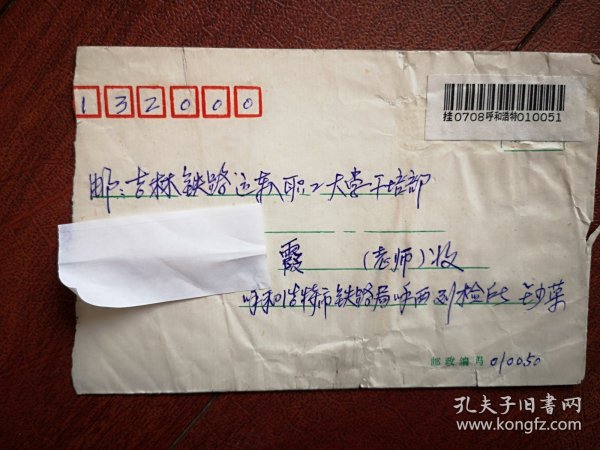 132000
桂0708呼和浩特010051
邮:吉林铁路运输职工大学干培部
霞 (老师)收
呼和浩特市铁路局呼西列检所
邮政编码 010050
孔夫子旧书网
www.kongfz.com